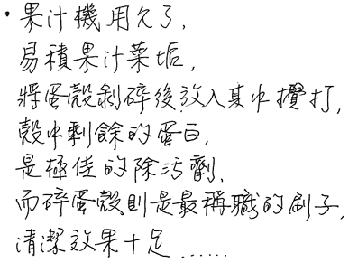 ·果汁機用久了,
易積果汁菜垢,
將蛋殼剁碎後放入其中攪打,
殼中剩餘的蛋白,
是極佳的除污劑,
而碎蛋殼則是最稱職的刷子,
清潔效果十足......